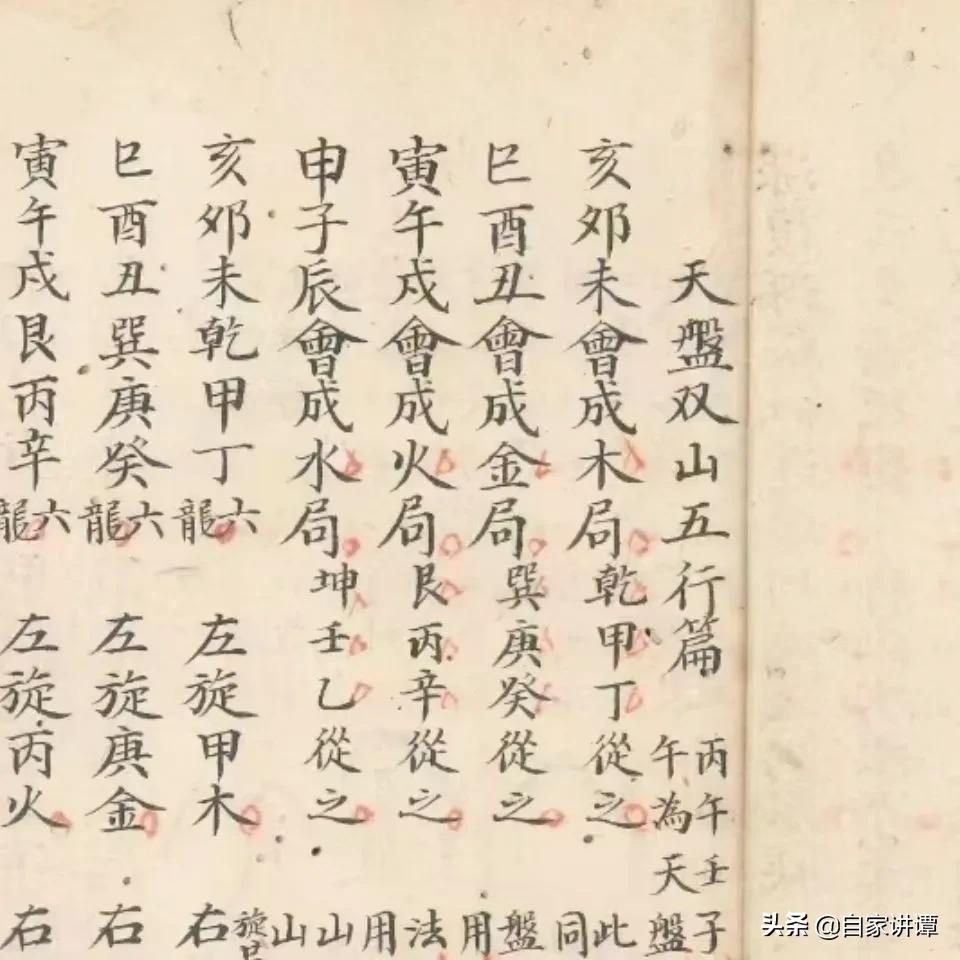 天盤双山五行篇 丙午壬子 午為天盤
亥卯未會成木局乾甲丁從之 此 同
巳酉丑會成金局巽庚癸從之 盤 用
寅午戌會成火局艮丙辛從之 法 用
申子辰會成水局坤壬乙從之 山 山
旋
亥卯未乾甲丁六龍 左旋甲木 右
巳酉丑巽庚癸六龍 左旋庚金 右
寅午戌艮丙辛六龍 左旋丙火 右
头条 @自家讲谭